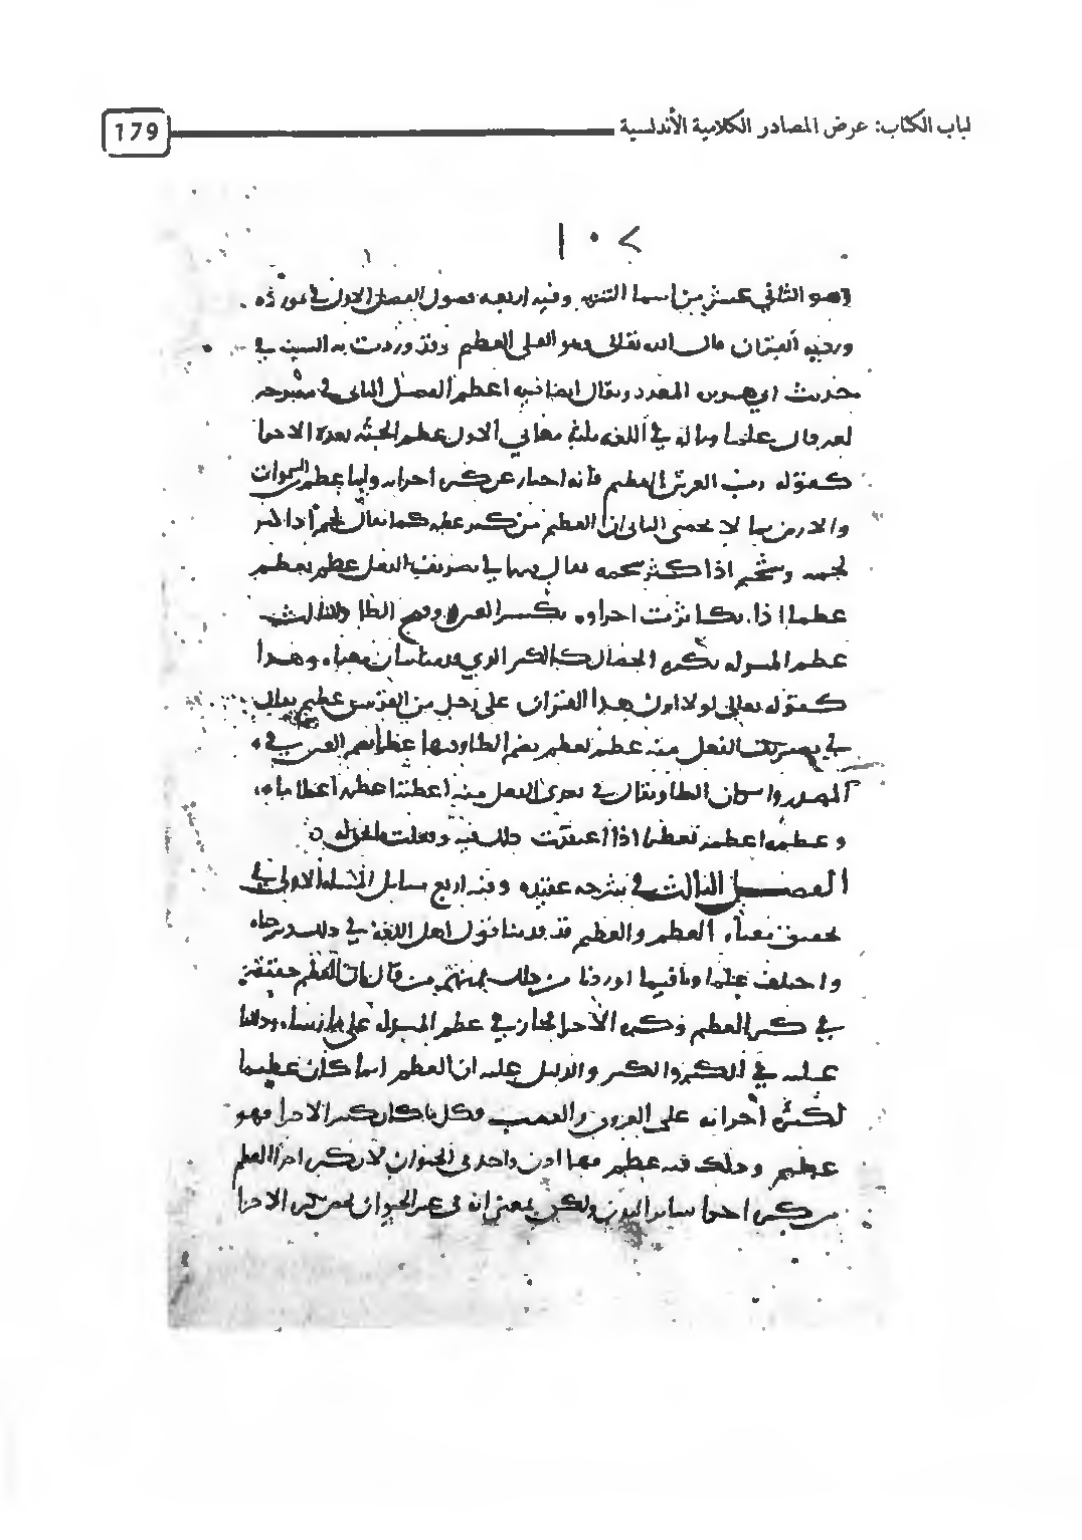 لباب الكتاب: عرض المصادر الكلامية الأندلسية
179
١٠٧
وهو الثاني عشر من اسما التنزيه وفيه اربعه فصول الفصل الاول في مورده
ورد به القران قال الله تعالى وهو العلي العظيم وقد وردت به السنه في
حديث ابي هريره المعدد ويقال ايضا فيه اعظم الفصل الثاني في شرحه
لغه قال علماونا له في اللغه ثلاثه معاني الاول عظم الجثه بعدة الاجزا
كقوله رب العرش العظيم فانه اخبار عن كثره اجزايه وانها عظم السموات
والارض بما لا يحصى الثاني ان العظيم من كبر عظمه كما يقال لحيم اذا كثر
لحمه وشحيم اذا كثر شحمه يقال منها في تصريف الفعل عظم يعظم
عظما اذا تكاثرت اجزاوه بكسر العين وفتح الظا والثالث
عظم المنزله بكثره الخصال كالكبر الذي قدمنا بيان معناه وهذا
كقوله تعالى لولا انزل هذا القران على رجل من القريتين عظيم يقال
في تصريف الفعل منه عظم يعظم بضم الظا وفيها عظما بضم العين في
المصدر واسكان الظا ويقال في تعدي الفعل منه اعظمته اعظمه اعظاما
وعظمته اعظمه تعظيما اذا اعتقدت ذلك فيه وفعلت
الفصل الثالث في شرحه عقيده وفيه اربع مسايل المسئلة الاولى في
تحقيق معناه العظم والعظيم قد قدمنا قول اهل اللغة في ذلك وشرحناه
واختلف علماونا فيما اوردنا من ذلك فمنهم من قال ان العظم حقيقة
في كبر العظم وكثره الاجزا مجاز في عظم المنزله على ما رتبناه ودللنا
عليه في الكبر والكبير والدليل عليه ان العظم انما كان عظيما
لكثره اجزايه على العروق والعصب وكل ما كان كثير الاجزا فهو
عظيم وذلك فيه عظيم فهما اذن واحد في الحيوان لان كثره اجزا العظم
من كثره اجزا ساير البدن ولكن بمعنى انه في غير الحيوان بمعنى كثره الاجزا